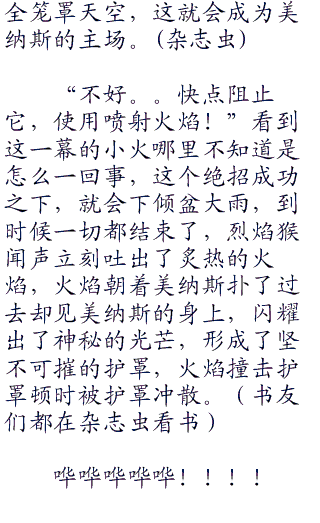 全笼罩天空，这就会成为美
纳斯的主场。(杂志虫)
“不好。。快点阻止
它，使用喷射火焰！”看到
这一幕的小火哪里不知道是
怎么一回事，这个绝招成功
之下，就会下倾盆大雨，到
时候一切都结束了，烈焰猴
闻声立刻吐出了炙热的火
焰，火焰朝着美纳斯扑了过
去却见美纳斯的身上，闪耀
出了神秘的光芒，形成了坚
不可摧的护罩，火焰撞击护
罩顿时被护罩冲散。（书友
们都在杂志虫看书）
哗哗哗哗哗！！！！